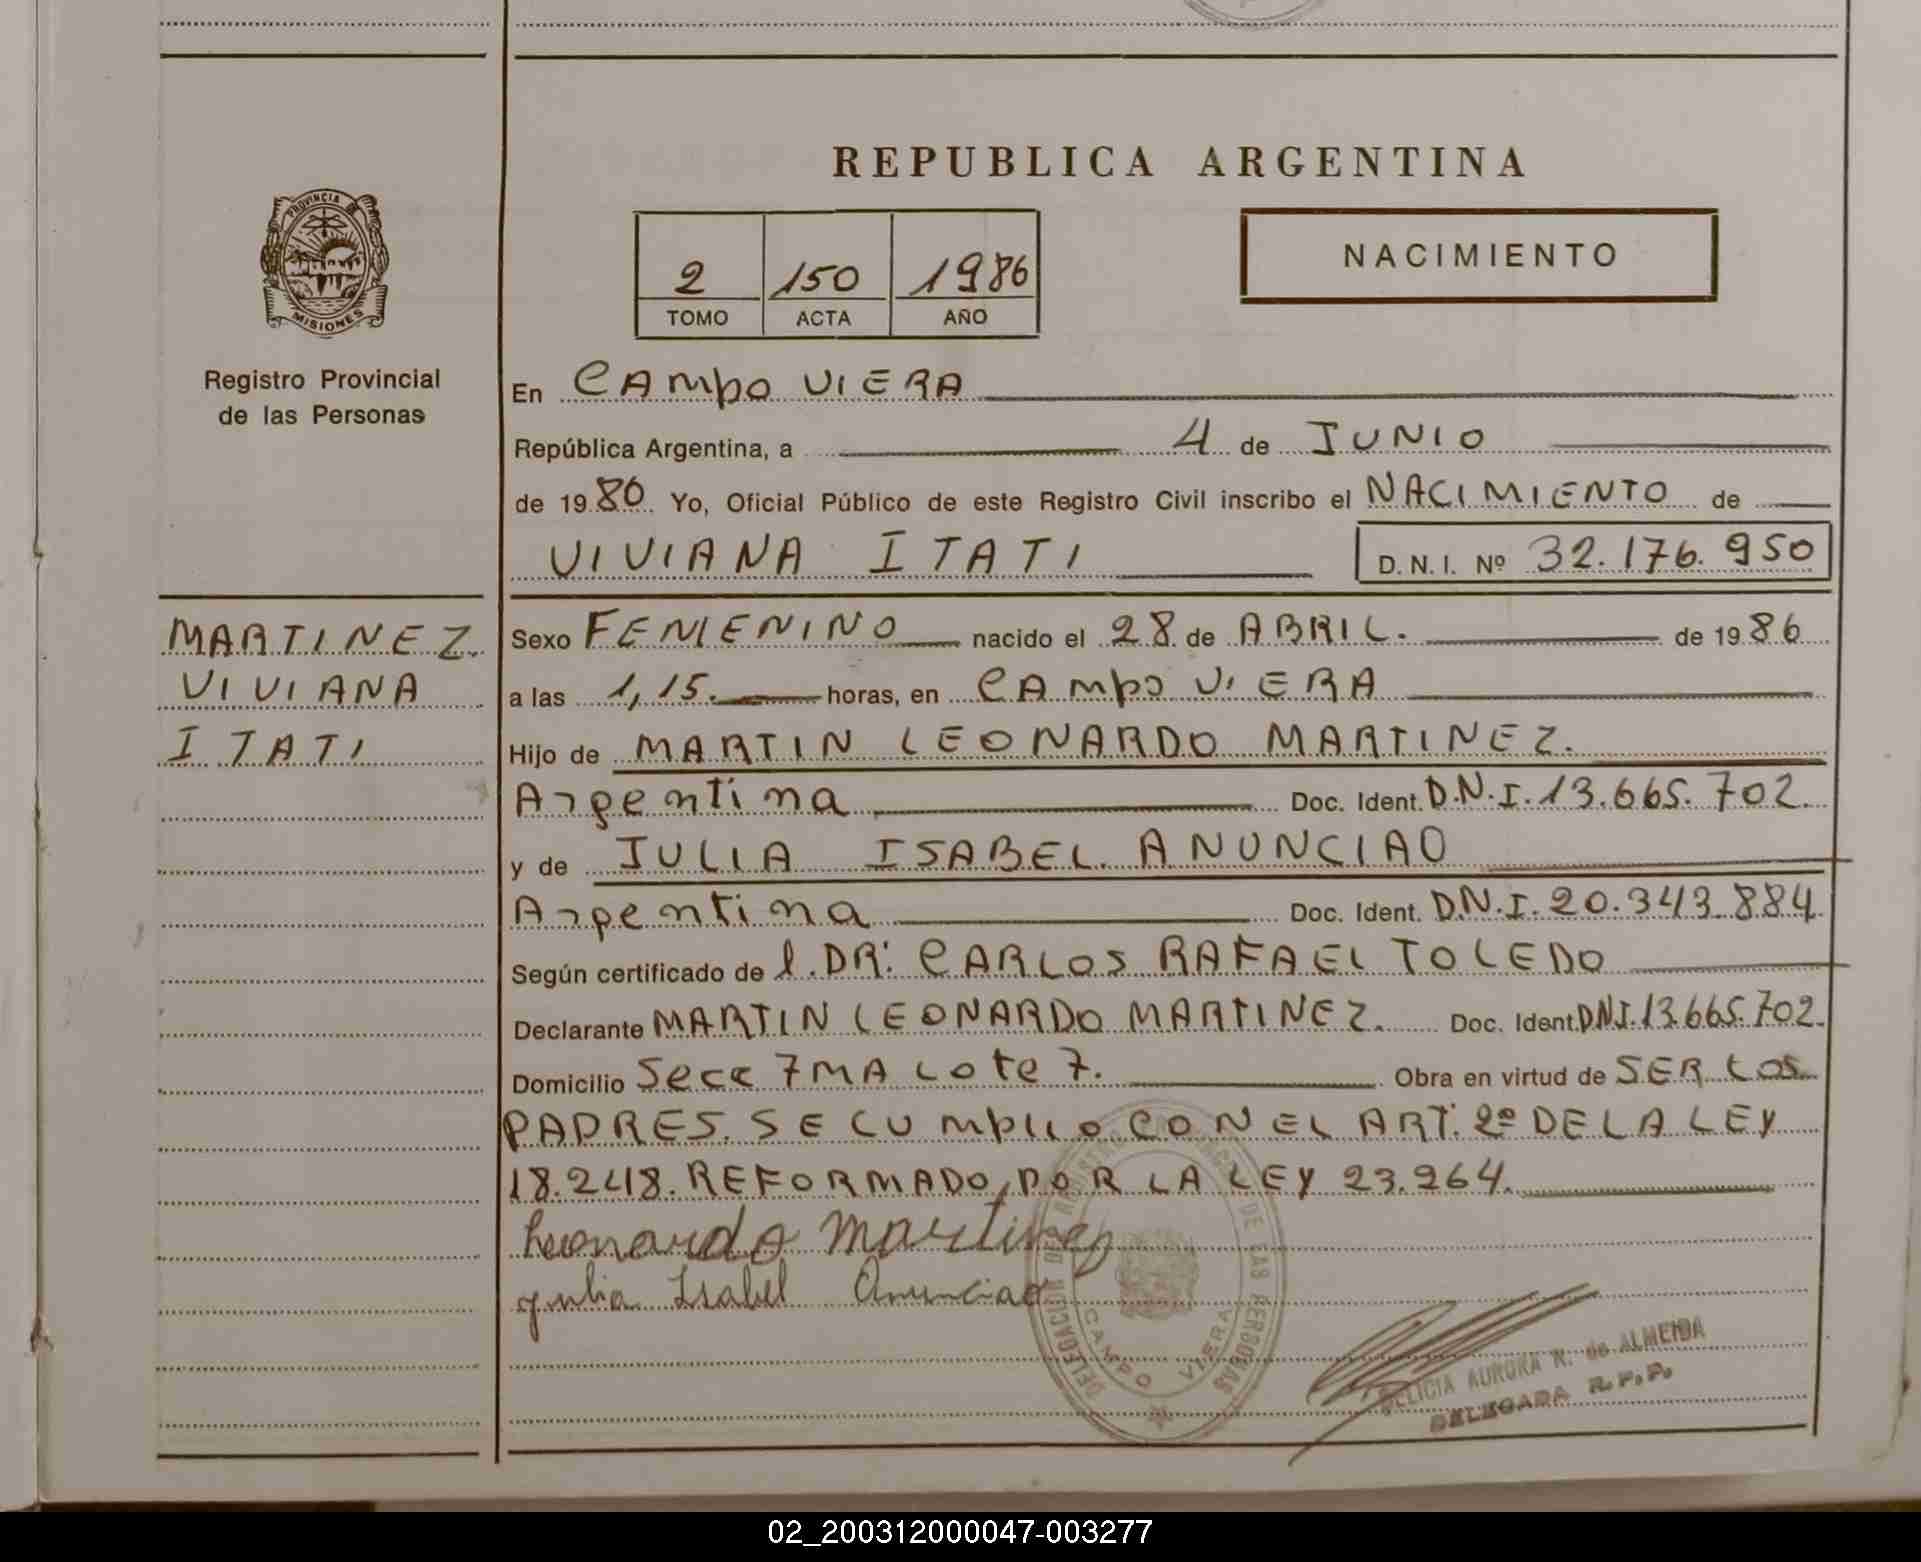 REPUBLICA ARGENTINA
PROVINCIA DE
MISIONES
Registro Provincial
de las Personas
2 150 1986
TOMO ACTA AÑO
NACIMIENTO
En CAMPO VIERA
República Argentina, a 4 de JUNIO
de 1986 Yo, Oficial Público de este Registro Civil inscribo el NACIMIENTO de
VIVIANA ITATI D. N. I. Nº 32.176.950
MARTINEZ
VIVIANA
ITATI
Sexo FEMENINO nacido el 28 de ABRIL. de 1986
a las 1,15. horas, en CAMPO VIERA
Hijo de MARTIN LEONARDO MARTINEZ.
Argentina Doc. Ident. D.N.I. 13.665.702.
y de JULIA ISABEL ANUNCIAO
Argentina Doc. Ident. D.N.I. 20.343.884
Según certificado de l. DR: CARLOS RAFAEL TOLEDO
Declarante MARTIN LEONARDO MARTINEZ. Doc. Ident. DNI. 13.665.702.
Domicilio Secc 7MA Lote 7. Obra en virtud de SER LOS
PADRES. SE CUMPLIO CON EL ART. 2º DE LA LEY
18.248. REFORMADO POR LA LEY 23.264.
Leonardo Martinez
Julia Isabel Anunciao
DELEGACION DEL REGISTRO PROVINCIAL DE LAS PERSONAS
CAMPO VIERA
FELICIA AURORA R. de ALMEIDA
DELEGADA R.P.P.
02_200312000047-003277